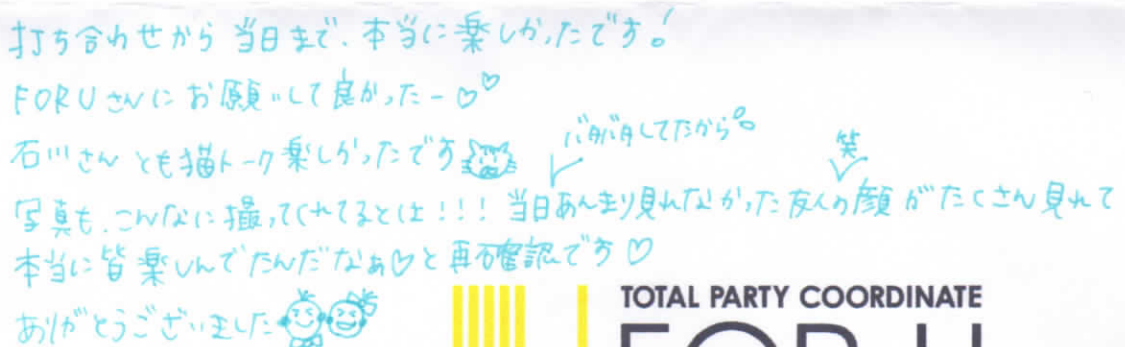 打ち合わせから当日まで、本当に楽しかったです!
FORUさんにお願いして良かったー♡♡
石川さんとも猫トーク楽しかったです
バタバタしてたから
笑
写真も、こんなに撮ってくれてるとは!!!当日あんまり見れなかった友人の顔がたくさん見れて
本当に皆楽しんでたんだなぁ♡と再確認です♡
ありがとうございました
TOTAL PARTY COORDINATE
FOR U